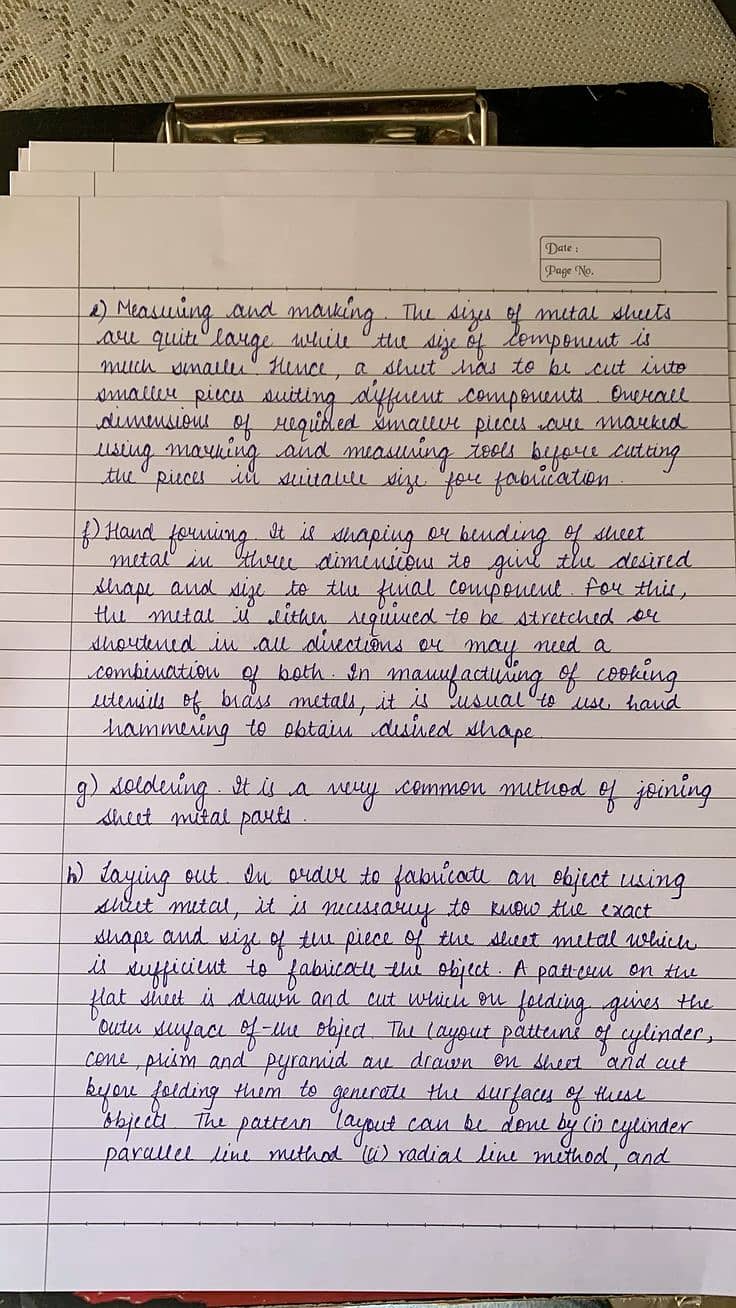 Date :
Page No.
e) Measuring and marking. The sizes of metal sheets
are quite large while the size of component is
much smaller. Hence, a sheet has to be cut into
smaller pieces suiting different components. Overall
dimensions of required smaller pieces are marked
using marking and measuring tools before cutting
the pieces in suitable size for fabrication.
f) Hand forming. It is shaping or bending of sheet
metal in three dimensions to give the desired
shape and size to the final component. For this,
the metal is either required to be stretched or
shortened in all directions or may need a
combination of both. In manufacturing of cooking
utensils of brass metals, it is usual to use hand
hammering to obtain desired shape.
g) Soldering. It is a very common method of joining
sheet metal parts.
h) Laying out. In order to fabricate an object using
sheet metal, it is necessary to know the exact
shape and size of the piece of the sheet metal which
is sufficient to fabricate the object. A pattern on the
flat sheet is drawn and cut which on folding gives the
outer surface of the object. The layout patterns of cylinder,
cone, prism and pyramid are drawn on sheet and cut
before folding them to generate the surfaces of these
objects. The pattern layout can be done by (i) cylinder
parallel line method (ii) radial line method, and